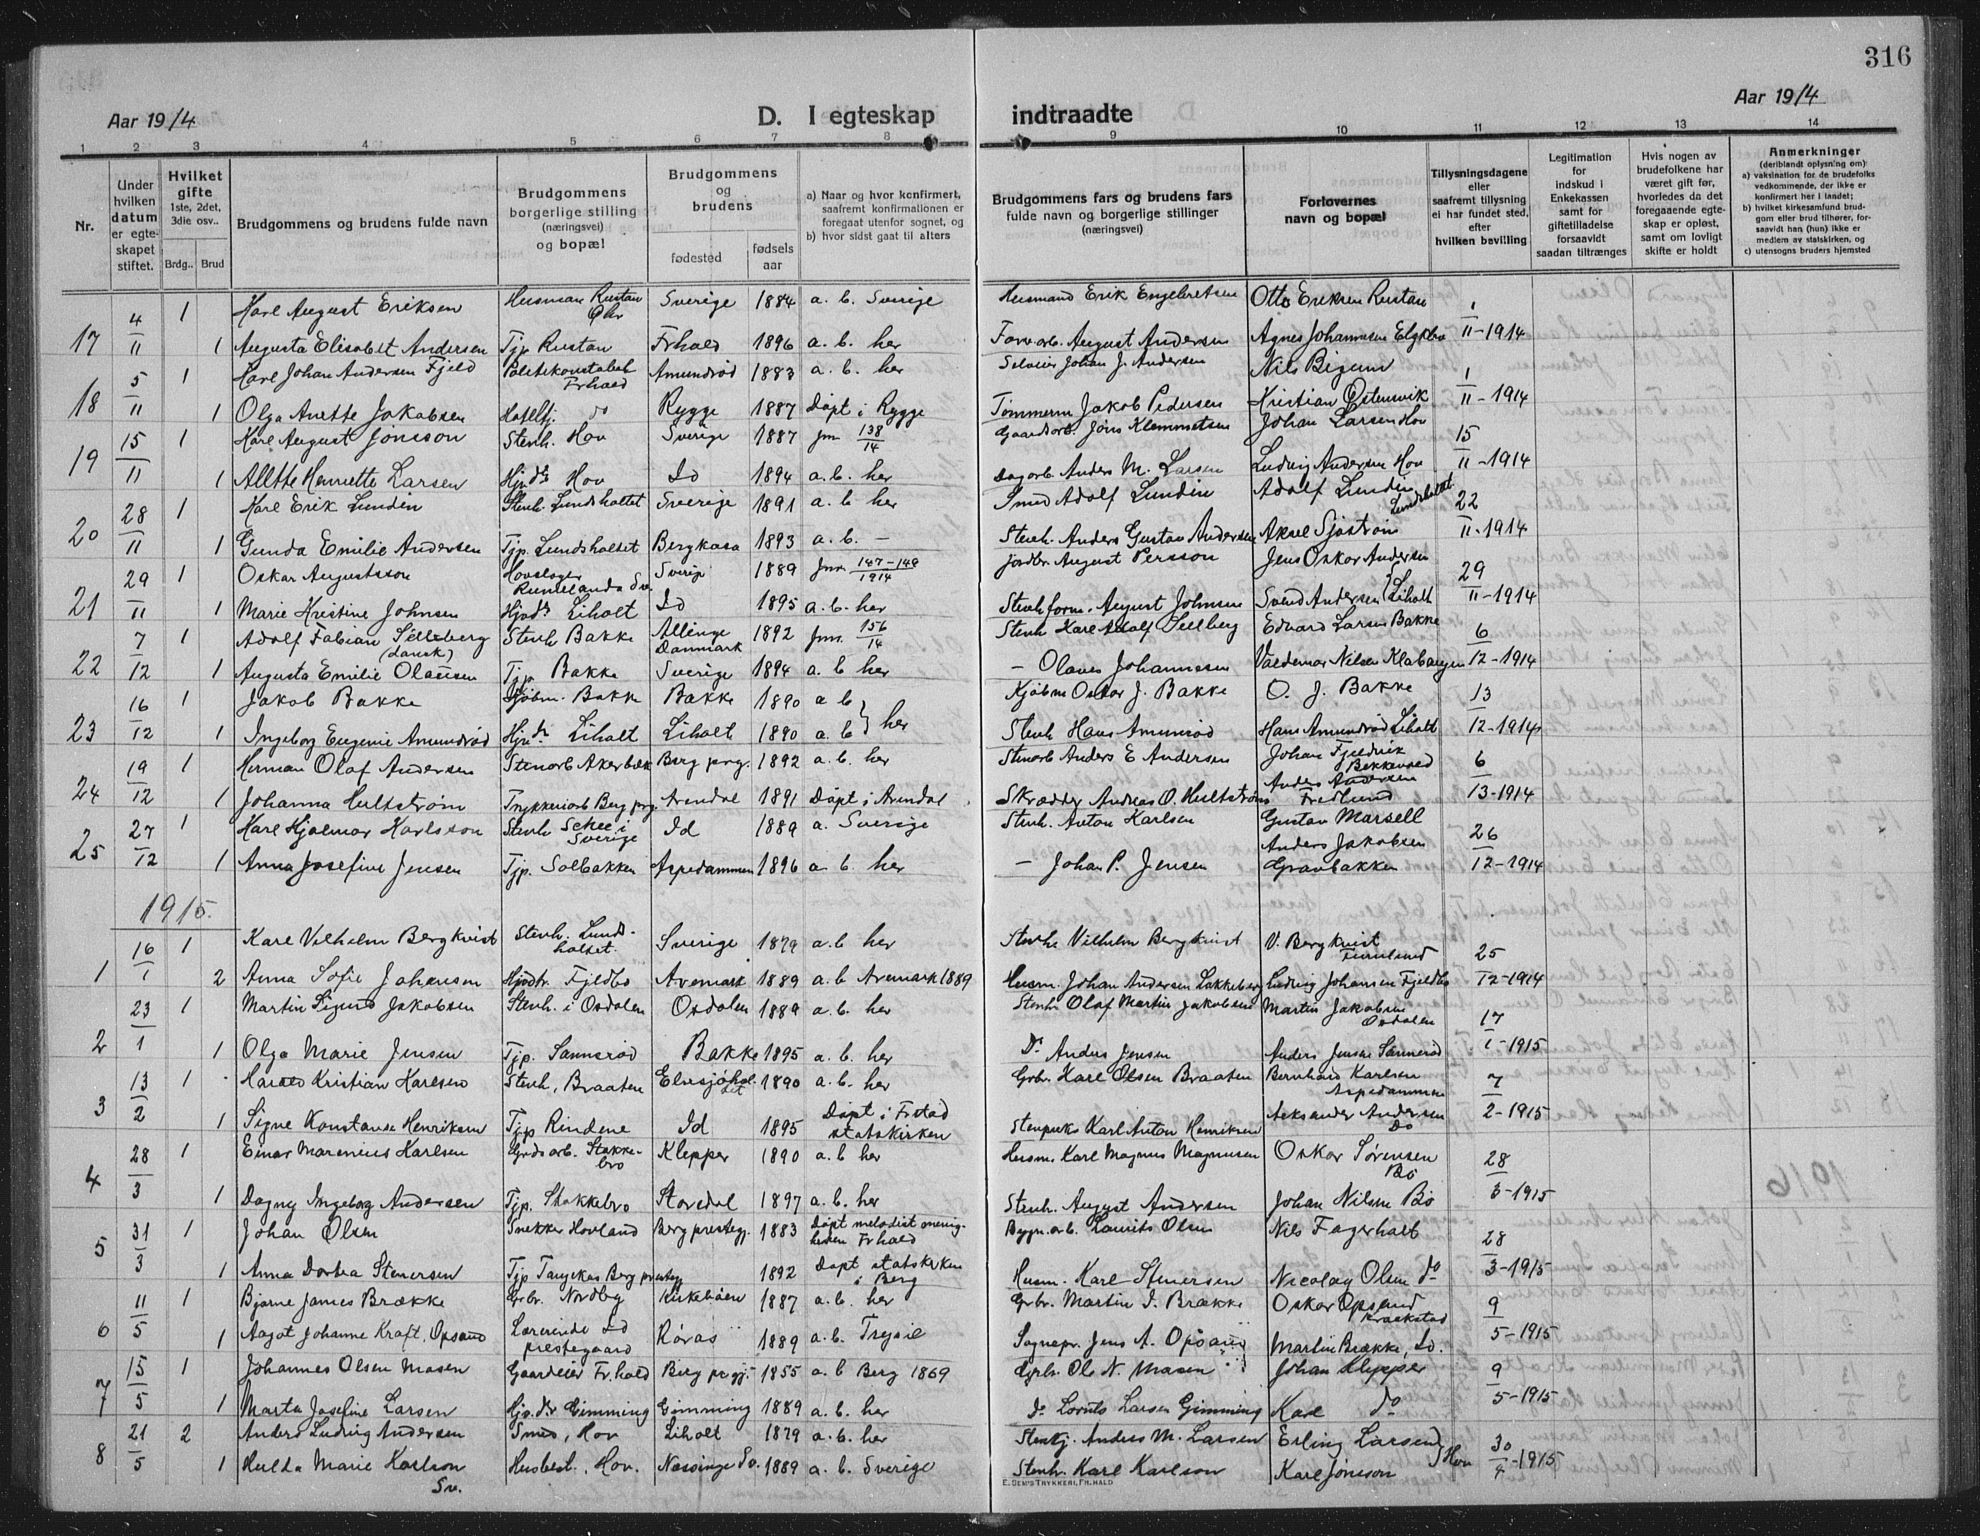 316
Aar 1914
D. I egteskap indtraadte
Aar 1914
1 2 3 4 5 6 7 8 9 10 11 12 13 14
Nr.
Under hvilken datum er egteskapet stiftet.
Hvilket gifte 1ste, 2det, 3die osv.. Brdg.. Brud
Brudgommens og brudens fulde navn
Brudgommens borgerlige stilling (næringsvei) og bopæl
Brudgommens og brudens fødested fødsels aar
a) Naar og hvor konfirmert, saafremt konfirmationen er foregaat utenfor sognet, og b) hvor sidst gaat til alters
Brudgommens fars og brudens fars fulde navn og borgerlige stillinger (næringsvei)
Forlovernes navn og bopæl
Tillysningsdagene eller saafremt tillysning ei har fundet sted, efter hvilken bevilling
Legitimation for indskud i Enkekassen samt for giftetilladelse forsaavidt saadan tiltrænges
Hvis nogen av brudefolkene har været gift før, hvorledes da det foregaaende egteskap er opløst, samt om lovligt skifte er holdt
Anmerkninger (deriblandt oplysning om) a) vaksination for de brudefolks vedkommende, der ikke er konfirmert her i landet; b) hvilket kirkesamfund brudgom eller brud tilhører, forsaavidt han (hun) ikke er medlem av statskirken, og c) utensogns bruders hjemsted
17 4/11 1 Karl August Eriksen Husman Rustan Sverige 1884 a. b. Sverige Husmand Erik Engebretsen Otto Eriksen Rustan 1/11-1914
1 Augusta Elisabet Andersen Tjp. Rustan Frhald 1896 a. b. her August Andersen Agnes Johannesen
18 5/11 1 Karl Johan Andersen Fjeld Politikonstabel Frhald Amundrød 1883 a. b. her Selveier Johan J. Andersen Nils Bigum 1/11-1914
1 Olga Anette Jakobsen Hoteltj. do Rygge 1887 Døpt i Rygge Tømmerm Jakob Pedersen Kristian Østensvik
19 15/11 1 Karl August Jonsson Stenh. Hov Sverige 1887 jnr. 138/14 Gaardsarb. Jöns Klemmetsen Johan Larsen Hov 15/11-1914
1 Henriette Larsen Hjdr. Hov Id 1894 a. b. her Dagarb Anders M. Larsen Ludvig Andersen Hov
20 28/11 1 Karl Erik Lundin Stenh. Lundsholtet Sverige 1891 a. b her Smed Adolf Lundin Adolf Lundin Lundsholtet 22/11-1914
1 Gunda Emilie Andersen Tjp. Lundsholtet Bergkasa 1893 a. b. — Stenh. Anders Gustav Andersen Aksel Sjøstrøm
21 29/11 1 Oskar Augustsson Sverige 1889 jnr. 147-149/1914 Jordbr. August Persson Jens Oskar Andersen 29/11-1914
1 Marie Kristine Johnsen Hjvdr Liholt Id 1895 a. b. her Stenhform. August Johnsen Svend Andersen Liholt
22 7/12 1 Adolf Fabian Selleberg (Dansk) Stenh Bakke Allinge Danmark 1892 jnr. 156/14 Stenh Karl Adolf Sellberg Edvard Larsen Bakke 6/12-1914
1 Augusta Emilie Olausen Tjp. Bakke Sverige 1894 a. b her — Olaves Johannesen Valdemar Nilsen
23 16/12 1 Jakob Bakke Kjøbm. Bakke Bakke 1890 a b her Kjøbm Oskar J. Bakke O. J. Bakke 13/12-1914
1 Ingeborg Eugenie Amundrød Hjvdr. Liholt Liholt 1890 a. b her Stenh Hans Amunrød Hans Amundrød Liholt
24 19/12 1 Herman Olaf Andersen Stenarb Akerbæk Berg prg. 1892 a. b. her Stenarb Anders E Andersen Johan Fjeldvik Bekkevold 6/13-1914
1 Johanna Hultstrøm Trykkeriarb Berg prg. Arendal 1891 Døpt i Arendal Skrædder Andreas O. Hultstrøm Anders Andersen Fredlund
25 27/12 1 Karl Hjalmar Karlsson Stenh Skee i Sverige Id 1889 a. Sverige Stenh. Anton Karlsen Gustav Marsell 26/12-1914
1 Anna Josefine Jensen Tjp. Solbakken Aspedammen 1896 a b. her — Johan P. Jensen Anders Jakobsen Gravbakken
1915.
1 16/1 1 Karl Vilhelm Bergkvist Stenh. Lundsholtet Sverige 1879 a. b her Stenh. Vilhelm Bergkvist V. Bergkvist 25/12-1914
2 Anna Sofie Johansen Fjeldbo Aremark 1889 a. b Aremark 1889 Husm. Johan Andersen Ludvig Johansen Fjeldbo
2 23/1 1 Martin Sigurd Jakobsen Stenh. i Osdalen Osdalen 1889 a. b. her Stenh. Olaf Martin Jakobsen Martin Jakobsen Osdalen 17/1-1915
1 Olga Marie Jensen Tjp. Sannerød Bakke 1895 a. b. her Do Anders Jensen Anders Jensen Sannerød
3 13/2 1 Kristian Karlsen Stenh. Braaten 1890 a. b. her Grbr. Karl Olsen Braaten Bernhard Karlsen Aspedammen 7/2-1915
1 Signe Konstanse Henriksen Tjp Rindene Id 1895 Døpt i Frstad statskirken Karl Anton Henriksen Aleksander Andersen Do
4 28/3 1 Einar Marenius Karlsen Grdsarb. Stakkebro Klepper 1890 a. b her Husm. Karl Magnus Magnusen Oskar Sørensen Bø 28/3-1915
1 Dagny Ingeborg Andersen Tjp. Stakkebro Stordal 1897 a. b. her Stenh. August Andersen Johan Nilsen Bø
5 31/3 1 Johan Olsen Snekker Hovland Berg prestegj. 1883 Døpt metodist menigheden Frhald Bygn. arb. Laurits Olsen Nils Fagerholt 28/3-1915
1 Anna Dortea Stenersen Tjp Berg prestegj 1892 Døpt statskirken i Berg Husm. Karl Stenersen Nicolay Olsen do
6 11/5 1 Bjarne James Brække Grbr. Nordby Kirkebøen 1887 a. b. her Grbr. Martin J. Brække Oskar Opsand Kraakstad 9/5-1915
1 Aagot Johanne Kraft Opsand Lærerinde Id prestegaard Røraas 1889 a. b. Trysil Sognepr. Jens A. Opsand Martin Brække, Id.
7 15/5 1 Johannes Olsen Masen Gaardeier Fr.hald Berg prgj. 1855 a. b Berg 1869 Grbr. Ole N. Masen Johan Klepper 9/5-1915
1 Marta Josefine Larsen Hjvdr Gimming Gimming 1889 a. b. her Do Laruts Larsen Gimming Karl do
8 21/5 2 Anders Ludvig Andersen Smed, Hov Liholt 1879 a. b. her Stenhj. Anders M. Larsen Erling Larsen Hov 30/4-1915
1 Hulda Marie Karlson Sv. Husbest. Hov. Næsinge Sv. 1889 a. b. Sverige Stenh. Karl Karlson Karl Jönsson
E. SEM'S TRYKKERI, FR.HALD